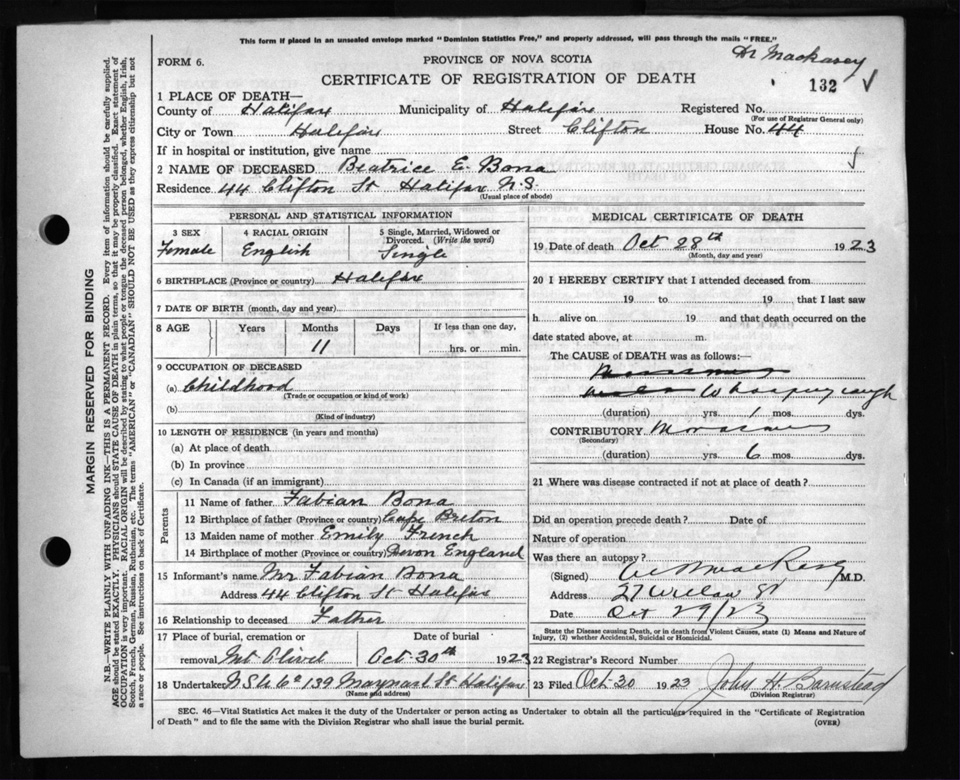 This form if placed in an unsealed envelope marked "Dominion Statistics Free," and properly addressed, will pass through the mails "FREE."
FORM 6.
PROVINCE OF NOVA SCOTIA
CERTIFICATE OF REGISTRATION OF DEATH
132 ✓
1 PLACE OF DEATH—
County of Halifax Municipality of Halifax Registered No.
(For use of Registrar General only)
City or Town Halifax Street Clifton House No. 44
If in hospital or institution, give name
2 NAME OF DECEASED Beatrice E. Bona
Residence 44 Clifton St Halifax N.S.
(Usual place of abode)
PERSONAL AND STATISTICAL INFORMATION
3 SEX 4 RACIAL ORIGIN 5 Single, Married, Widowed or Divorced. (Write the word)
Female English Single
6 BIRTHPLACE (Province or country) Halifax
7 DATE OF BIRTH (month, day and year)
8 AGE Years Months Days If less than one day,
11 hrs. or min.
9 OCCUPATION OF DECEASED
(a) Childhood
(Trade or occupation or kind of work)
(b)
(Kind of industry)
10 LENGTH OF RESIDENCE (in years and months)
(a) At place of death
(b) In province
(c) In Canada (if an immigrant)
Parents
11 Name of father Fabian Bona
12 Birthplace of father (Province or country) Cape Breton
13 Maiden name of mother Emily French
14 Birthplace of mother (Province or country) Devon England
15 Informant's name Mr Fabian Bona
Address 44 Clifton St Halifax
16 Relationship to deceased Father
17 Place of burial, cremation or Date of burial
removal Mt Olivet Oct 30th 1923
18 Undertaker N S U Co 139 Maynard St Halifax
(Name and address)
MEDICAL CERTIFICATE OF DEATH
19 Date of death Oct 28th 1923
(Month, day and year)
20 I HEREBY CERTIFY that I attended deceased from
19 to 19 , that I last saw
h alive on 19 and that death occurred on the
date stated above, at m.
The CAUSE OF DEATH was as follows:—
Whooping cough
(duration) yrs. 1 mos. dys.
CONTRIBUTORY Marasmus
(Secondary)
(duration) yrs. 6 mos. dys.
21 Where was disease contracted if not at place of death?
Did an operation precede death? Date of
Nature of operation
Was there an autopsy?
(Signed) M.D.
Address 27 Willow St
Date Oct 29/23
State the Disease causing Death, or in death from Violent Causes, state (1) Means and Nature of
Injury, (2) whether Accidental, Suicidal or Homicidal.
22 Registrar's Record Number
23 Filed Oct 30 1923 John H. Barnstead
(Division Registrar)
SEC. 46—Vital Statistics Act makes it the duty of the Undertaker or person acting as Undertaker to obtain all the particulars required in the "Certificate of Registration
of Death" and to file the same with the Division Registrar who shall issue the burial permit.
(OVER)
MARGIN RESERVED FOR BINDING
N.B.—WRITE PLAINLY WITH UNFADING INK—THIS IS A PERMANENT RECORD. Every item of information should be carefully supplied.
AGE should be stated EXACTLY. PHYSICIANS should STATE CAUSE OF DEATH in plain terms, so that it may be properly classified. Exact statement of
OCCUPATION is very important. RACIAL ORIGIN will be described by stating to what people or tongue the deceased person belonged, whether English, Irish,
Scotch, French, German, Russian, Ruthenian, etc. The terms "AMERICAN" or "CANADIAN" SHOULD NOT BE USED as they express citizenship but not
a race or people. See instructions on back of Certificate.